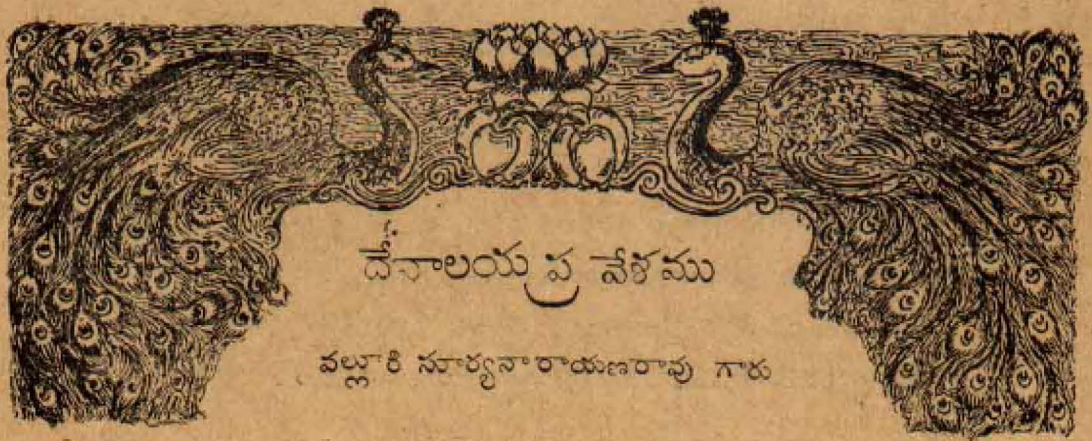 దేవాలయ ప్రవేశము
వల్లూరి సూర్యనారాయణరావు గారు